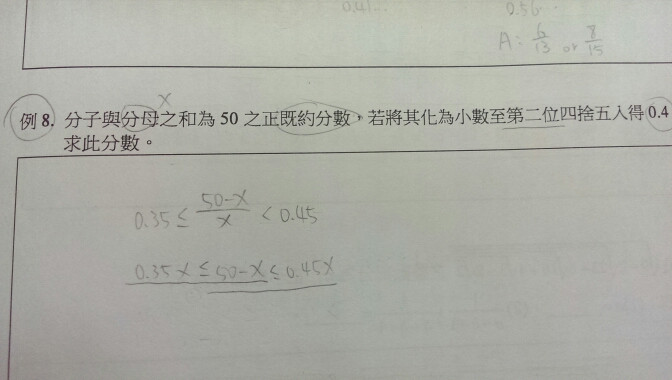 0.41...
0.56...
A: 6/13 or 8/15
x
例 8. 分子與分母之和為 50 之正既約分數,若將其化為小數至第二位四捨五入得 0.4
求此分數。
0.35 ≤ (50-x)/x < 0.45
0.35x ≤ 50-x ≤ 0.45x